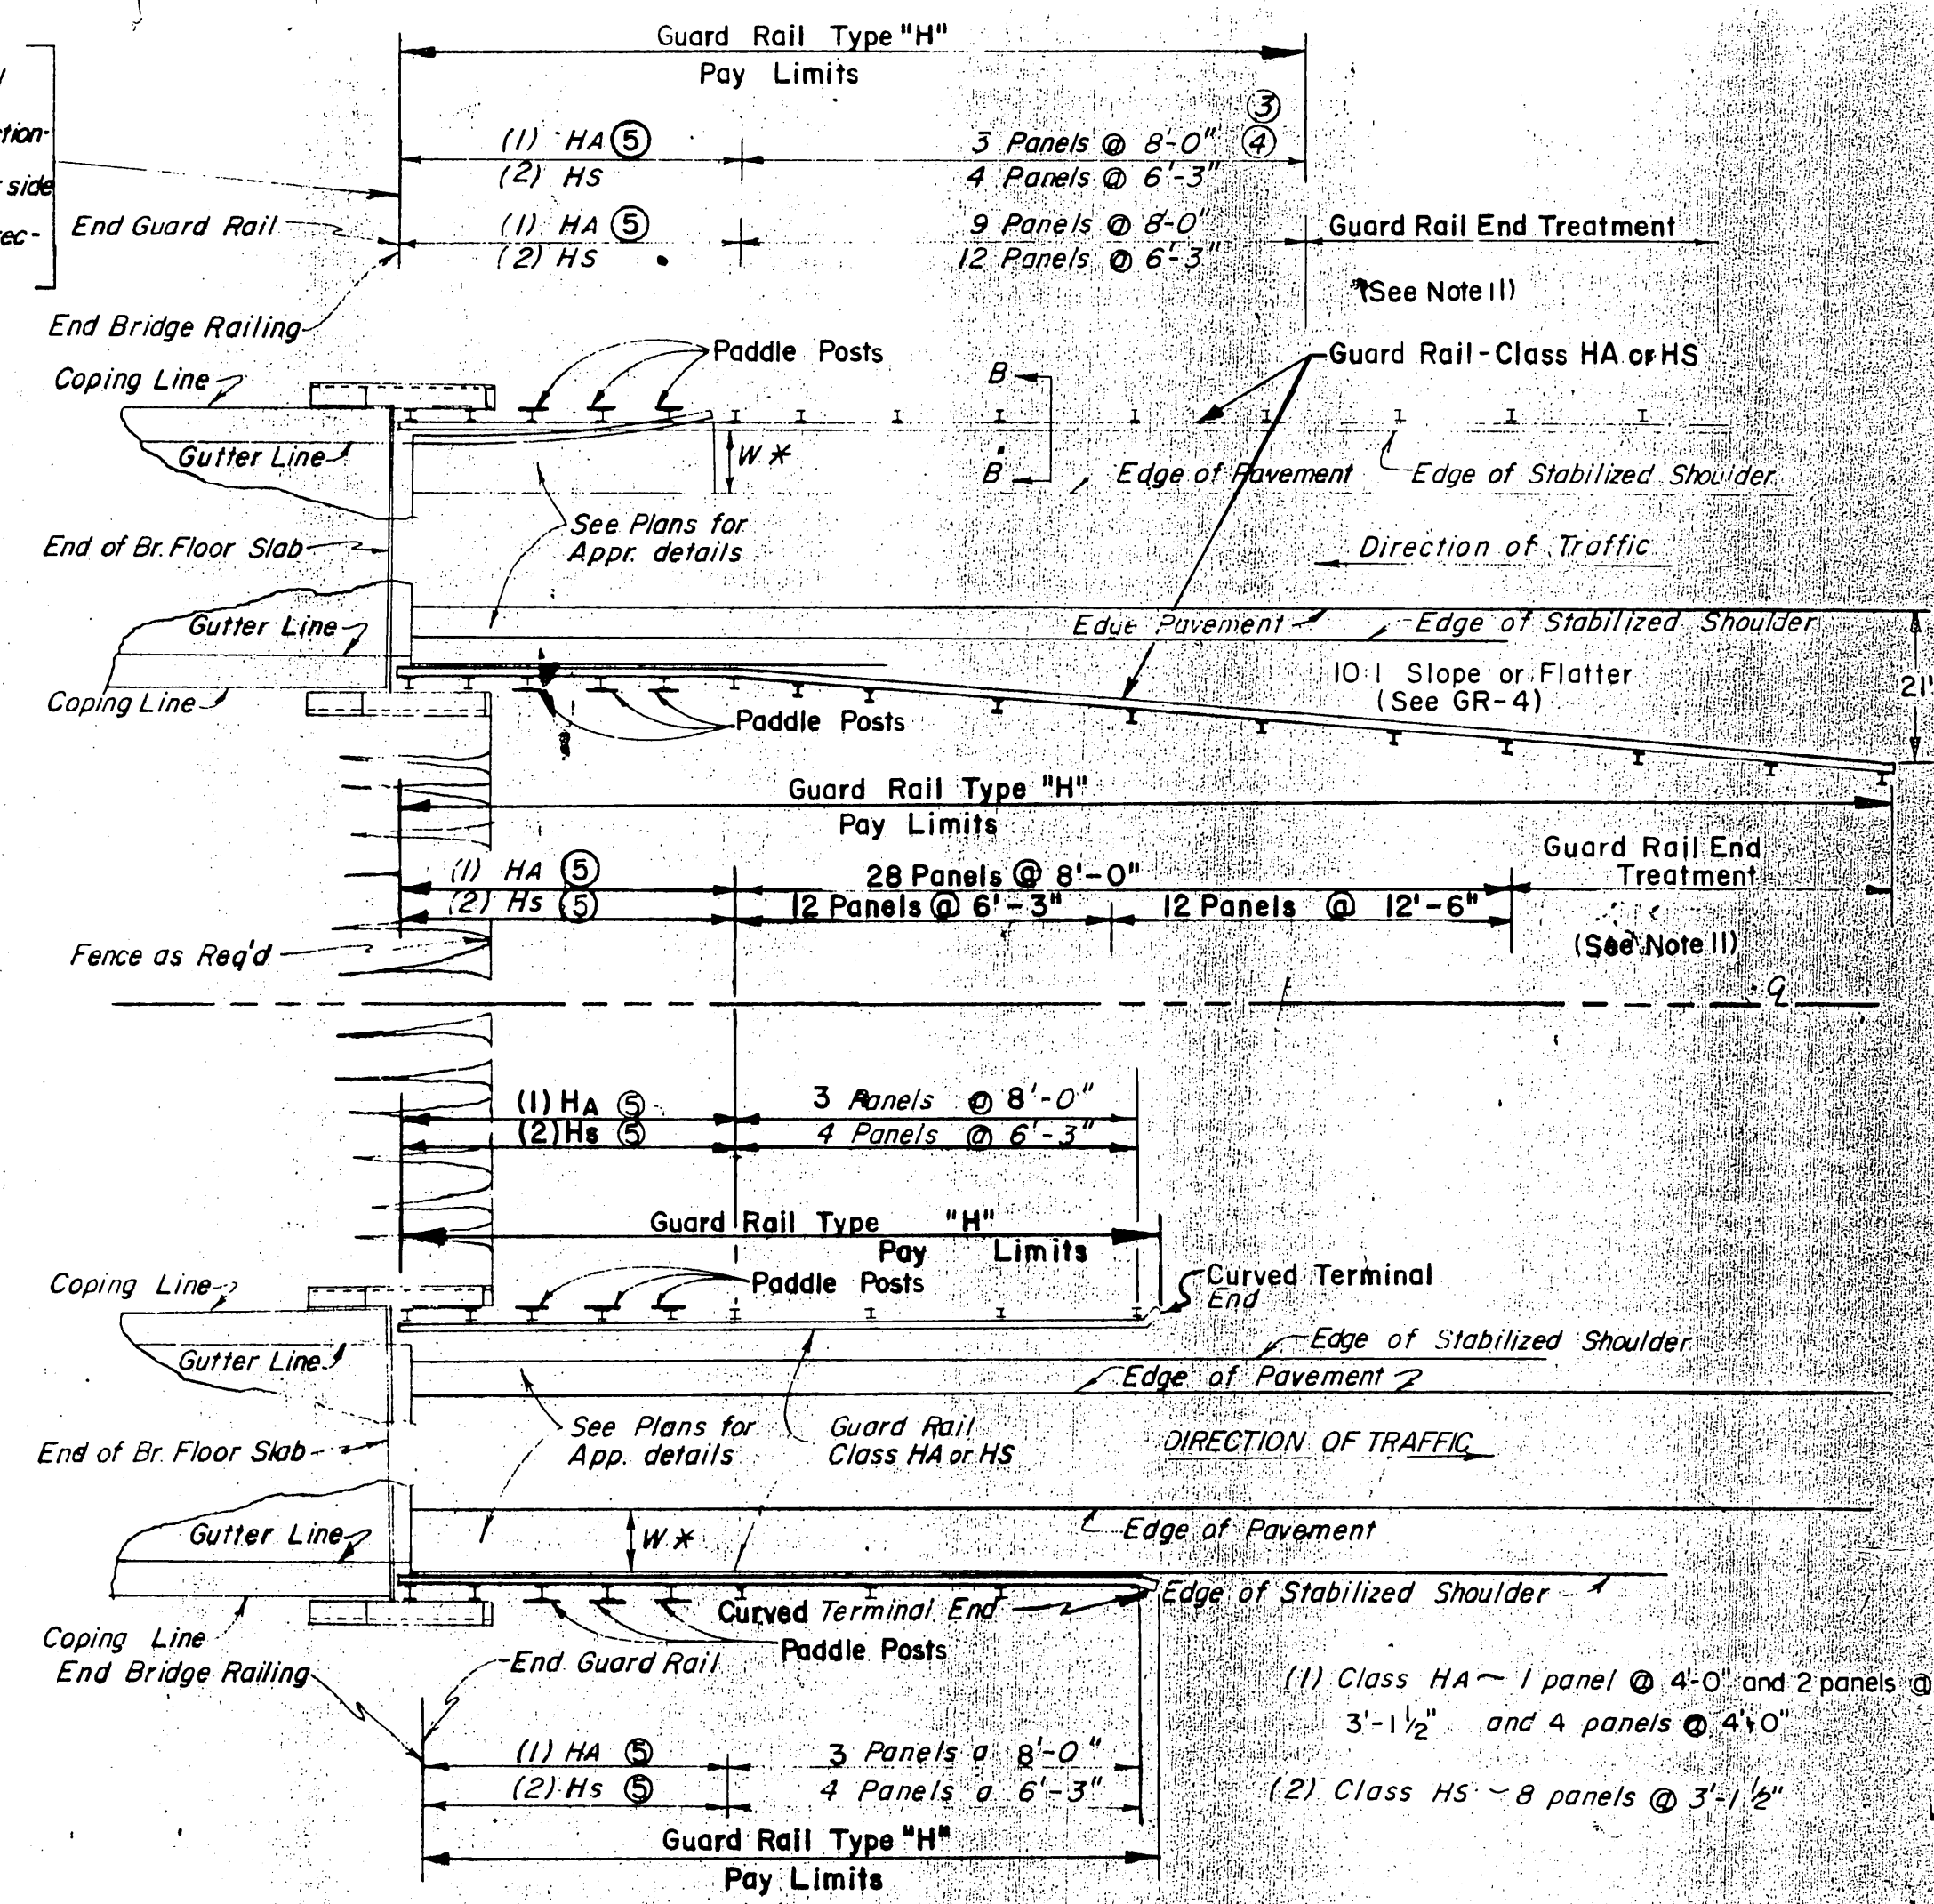 Guard Rail Type "H"
Pay Limits
tion-
side
rec-
(1) HA ⑤
(2) HS
③
3 Panels @ 8'-0" ④
4 Panels @ 6'-3"
End Guard Rail
(1) HA ⑤
(2) HS
9 Panels @ 8-0"
12 Panels @ 6'-3"
Guard Rail End Treatment
*(See Note 11)
End Bridge Railing
Paddle Posts
Guard Rail-Class HA or HS
Coping Line
B
Gutter Line
W *
B
Edge of Pavement
Edge of Stabilized Shoulder
See Plans for
Appr. details
End of Br. Floor Slab
Direction of Traffic
Gutter Line
Edge Pavement
Edge of Stabilized Shoulder
10:1 Slope or Flatter
(See GR-4)
21'
Coping Line
Paddle Posts
Guard Rail Type "H"
Pay Limits
Guard Rail End
Treatment
(1) HA ⑤
28 Panels @ 8'-0"
(2) Hs ⑤
12 Panels @ 6'-3"
12 Panels @ 12'-6"
(See Note 11)
Fence as Req'd
(1) HA ⑤
3 Panels @ 8'-0"
(2) Hs ⑤
4 Panels @ 6'-3"
Guard Rail Type "H"
Pay Limits
Coping Line
Paddle Posts
Curved Terminal
End
Gutter Line
Edge of Stabilized Shoulder
Edge of Pavement
See Plans for
App. details
Guard Rail
Class HA or HS
DIRECTION OF TRAFFIC
End of Br. Floor Slab
Gutter Line
W *
Edge of Pavement
Edge of Stabilized Shoulder
Curved Terminal End
Coping Line
Paddle Posts
End Bridge Railing
End Guard Rail
(1) Class HA ~ 1 panel @ 4'-0" and 2 panels @
3'-1 1/2" and 4 panels @ 4'-0"
(1) HA ⑤
3 Panels a 8'-0"
(2) Hs ⑤
4 Panels a 6'-3"
(2) Class HS ~ 8 panels @ 3'-1 1/2"
Guard Rail Type "H"
Pay Limits